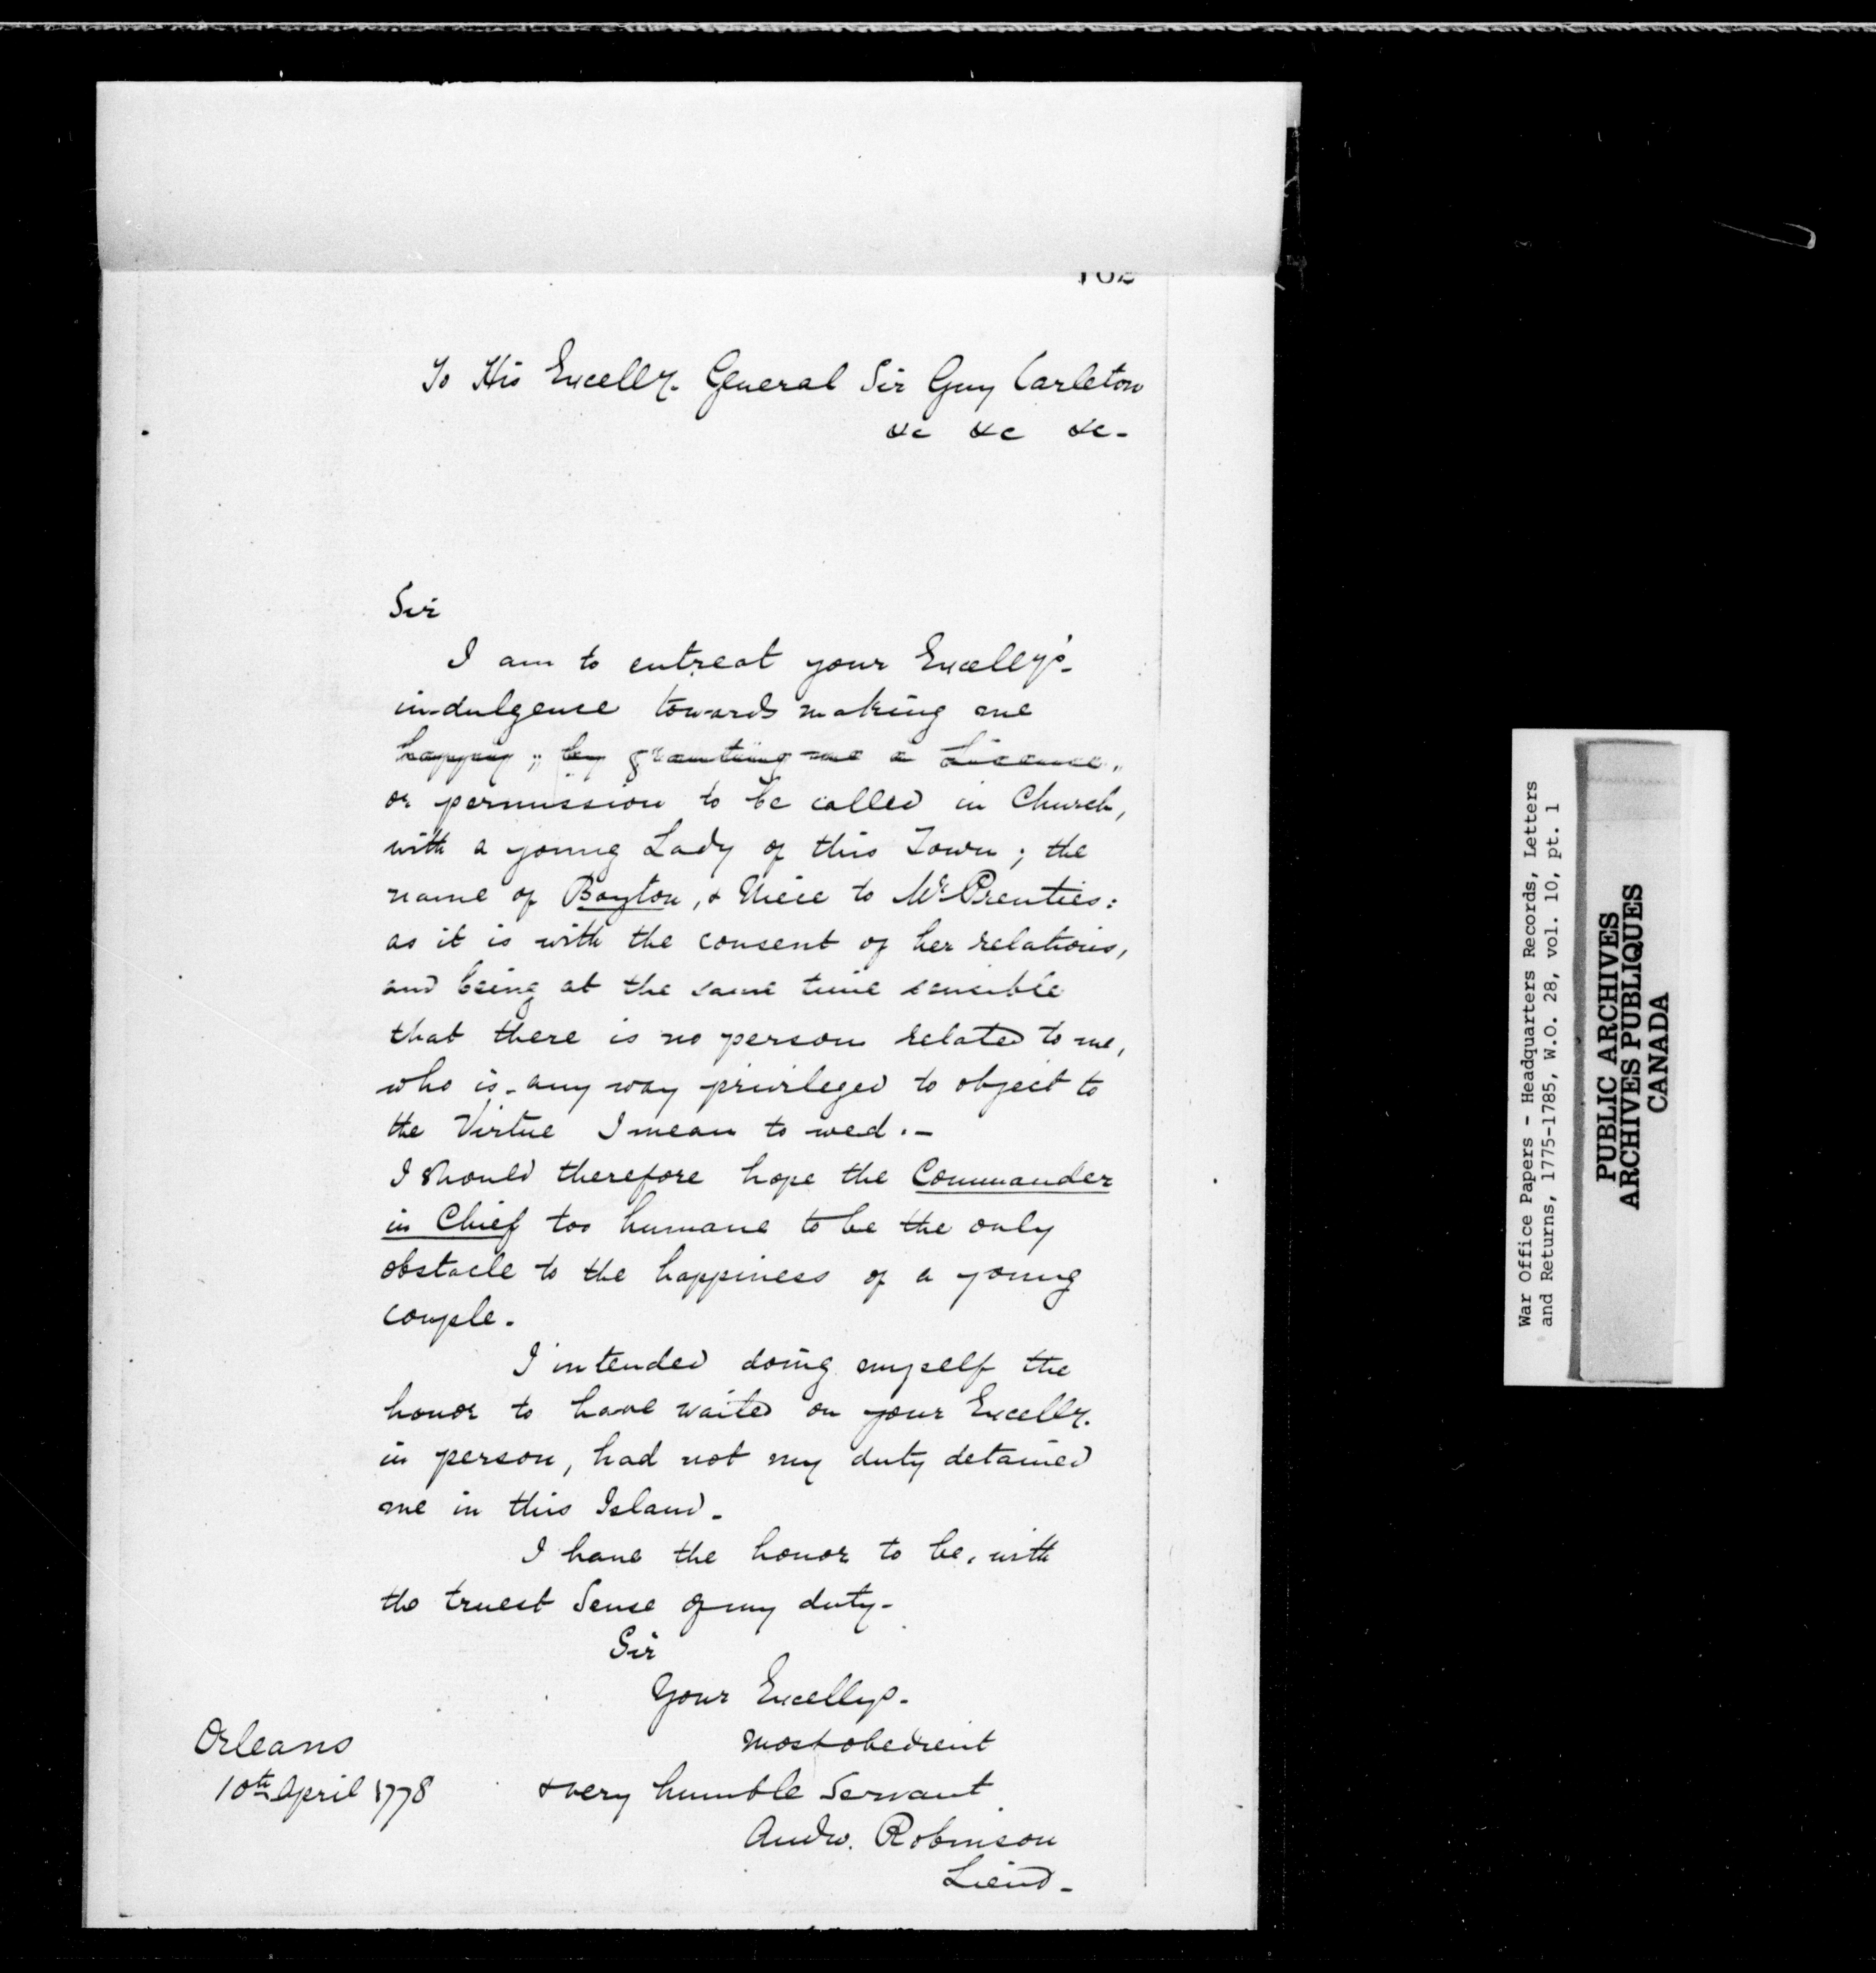 To His Excelly. General Sir Guy Carleton
&c &c &c-
Sir
I am to entreat your Excelly's-
indulgence towards making me
happy, by granting me a Licence,
or permission to be called in Church,
with a young Lady of this Town; the
name of Bayton, & Niece to Mr. Prenties:
as it is with the consent of her relations,
and being at the same time sensible
that there is no person related to me,
who is any way privileged to object to
the Virtue I mean to wed.-
I should therefore hope the Commander
in Chief too humane to be the only
obstacle to the happiness of a young
couple.
I intended doing myself the
honor to have waited on your Excelly.
in person, had not my duty detained
me in this Island.
I have the honor to be, with
the truest Sense of my duty-
Sir
Your Excellys.
Most obedient
Orleans
10th April 1778
& very humble Servant
Andw. Robinson
Lieut-
War Office Papers - Headquarters Records, Letters
and Returns, 1775-1785, W.O. 28, vol. 10, pt. 1
PUBLIC ARCHIVES
ARCHIVES PUBLIQUES
CANADA